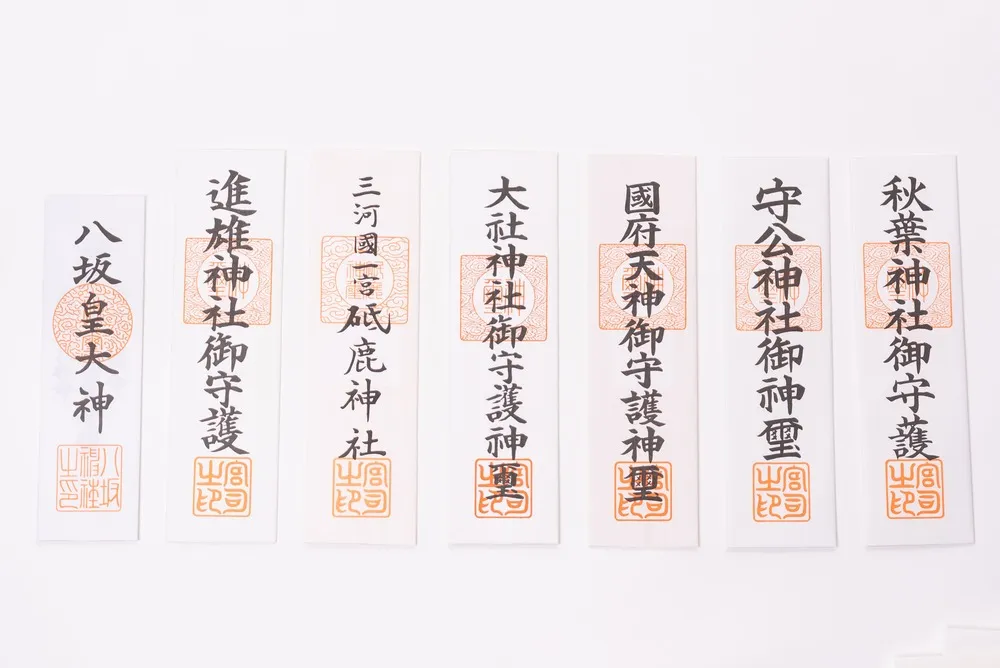 秋葉神社御守護
宮司
之印
守公神社御神璽
宮司
之印
國府天神御守護神璽
宮司
之印
大社神社御守護神璽
宮司
之印
三河國一宮砥鹿神社
宮司
之印
進雄神社御守護
宮司
之印
八坂皇大神
八坂
神社
之印